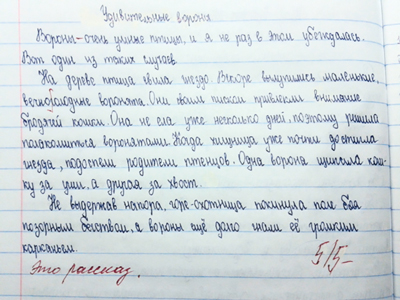 Удивительные вороны
Вороны – очень умные птицы, и я не раз в этом убеждалась.
Вот один из таких случаев.
На дереве птица свила гнездо. Вскоре вылупились маленькие,
вечно голодные воронята. Они своим писком привлекли внимание
бродячей кошки. Она не ела уже несколько дней, поэтому решила
полакомиться воронятами. Когда хищница уже почти достигла
гнезда, подоспели родители птенцов. Одна ворона щипала кош-
ку за уши, а другая за хвост.
Не выдержав напора, горе-охотница покинула поле боя
позорным бегством, а вороны ещё долго гнали её громким
карканьем.
5/5-
Это рассказ.